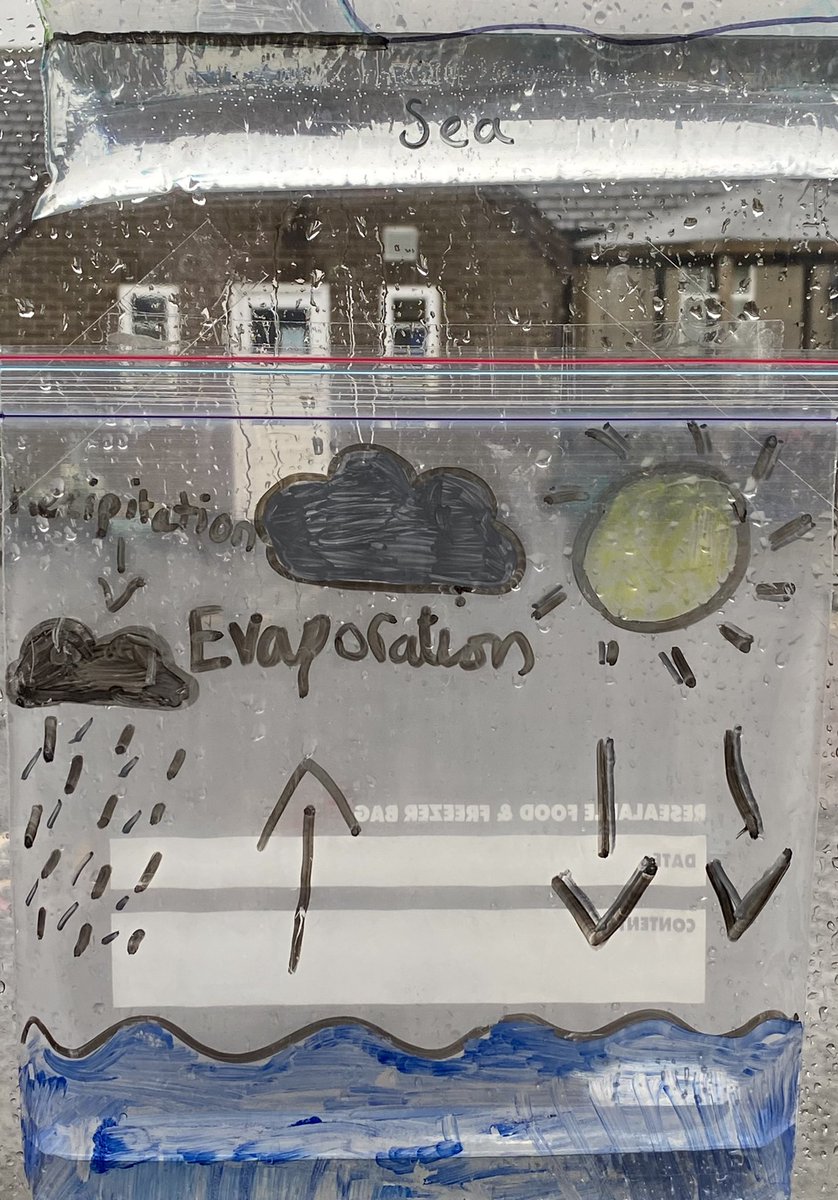 Sea
Precipitation
Evaporation
RESEALABLE FOOD & FREEZER BAG
DATE
CONTENTS